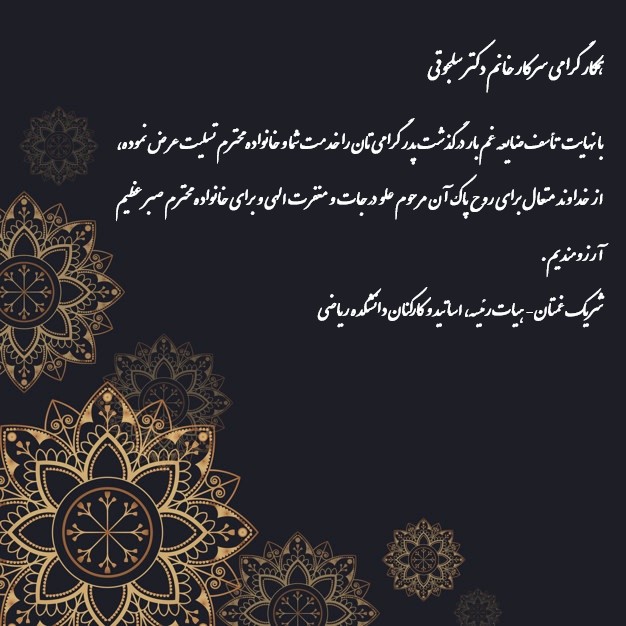 همکار گرامی سرکار خانم دکتر سلجوقی
با نهایت تأسف ضایعه غم بار درگذشت پدر گرامی تان را خدمت شما و خانواده محترم تسلیت عرض نموده،
از خداوند متعال برای روح پاک آن مرحوم علو درجات و مغفرت الهی و برای خانواده محترم صبر عظیم
آرزومندیم.
شریک غمتان- هیات رئیسه، اساتید و کارکنان دانشکده ریاضی